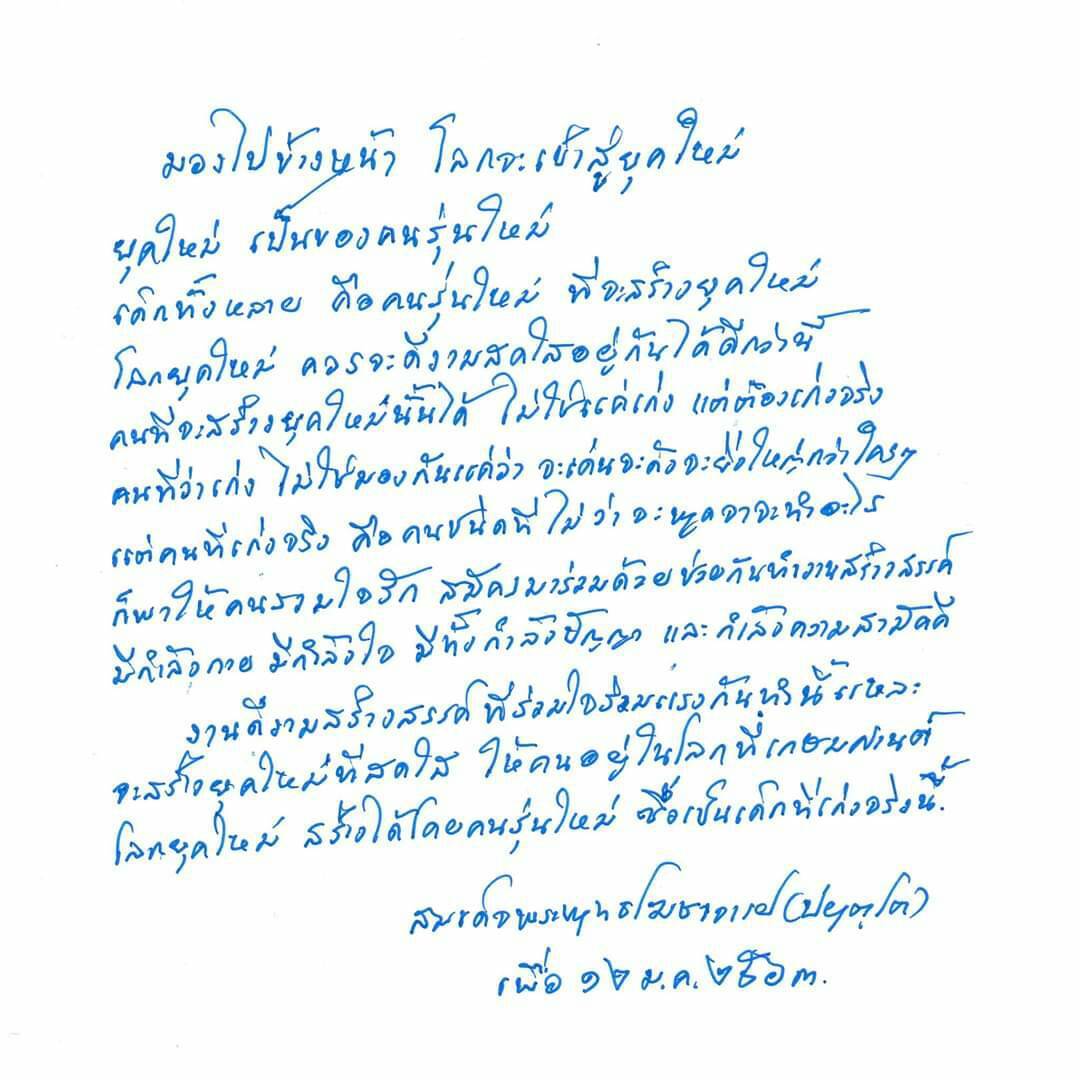 มองไปข้างหน้า โลกจะเข้าสู่ยุคใหม่
ยุคใหม่ เป็นของคนรุ่นใหม่
เด็กทั้งหลาย คือคนรุ่นใหม่ ที่จะสร้างยุคใหม่
โลกยุคใหม่ ควรจะดีงามสดใสอยู่กันได้ดีกว่านี้
คนที่จะสร้างยุคใหม่นั้นได้ ไม่ใช่แค่เก่ง แต่ต้องเก่งจริง
คนที่ว่าเก่ง ไม่ใช่มองกันแค่ว่า จะเด่นจะดังจะยิ่งใหญ่กว่าใครๆ
แต่คนที่เก่งจริง คือคนชนิดที่ ไม่ว่าจะพูดจาจะทำอะไร
ก็พาให้คนรวมใจรัก สมัครมาร่วมด้วยช่วยกันทำงานสร้างสรรค์
มีกำลังกาย มีกำลังใจ มีทั้งกำลังปัญญา และกำลังความสามัคคี
งานดีงามสร้างสรรค์ที่ร่วมใจร่วมแรงกันทำนี้แหละ
จะสร้างยุคใหม่ที่สดใส ให้คนอยู่ในโลกที่เกษมศานต์
โลกยุคใหม่ สร้างได้โดยคนรุ่นใหม่ ซึ่งเป็นเด็กที่เก่งจริงนี้.
สมเด็จพระพุทธโฆษาจารย์ (ปยุตฺโต)
เพื่อ ๑๒ ม.ค. ๒๕๖๓.